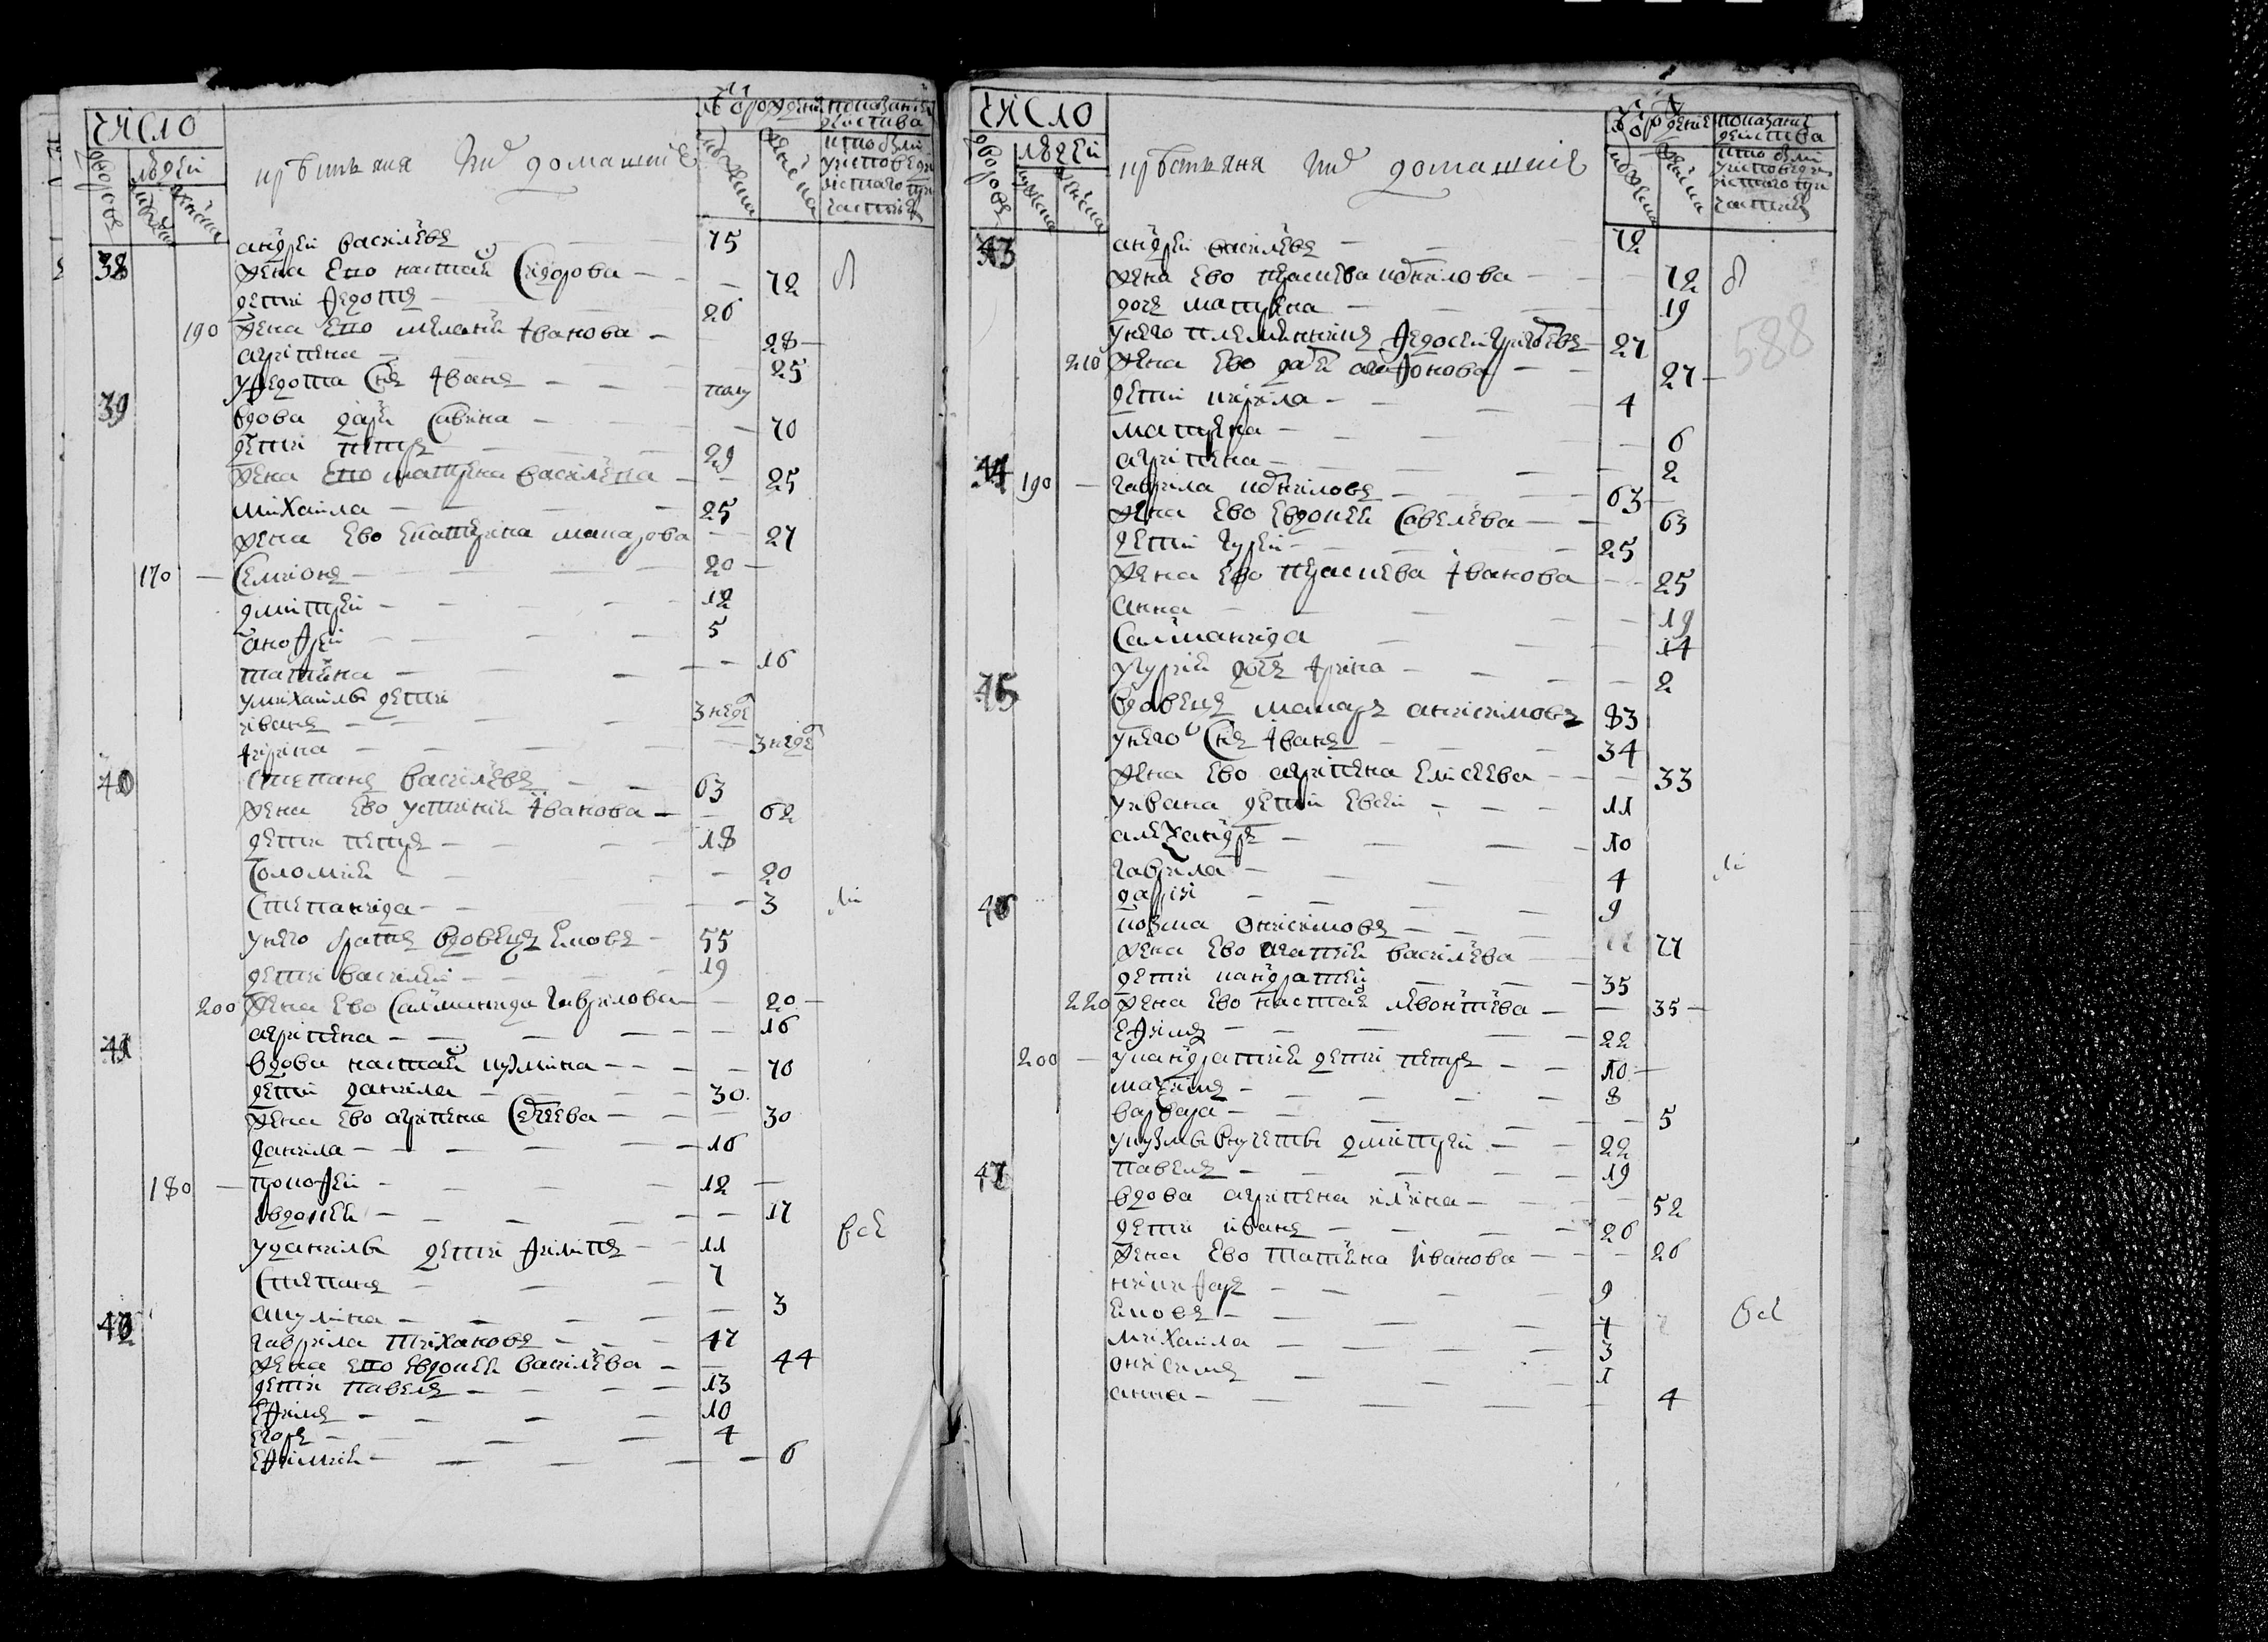 число
дворовъ
людей
мужеска
женска
крестьяня и их домашние
от рождения
мужеска
женска
показание действа
кто был у исповеди и святаго причастия
38 андрей василевъ 75
жена ево настася сидорова 72
дети федотъ 26
190 жена ево меланья иванова 28
агрипена 25
у федота снъ иванъ полу
39 вдова дарья савина 70
дети петръ 29
жена ево матрена василева 25
михаила 25
жена ево екатерина макарова 27
170 семионъ 20
дмитрей 12
анофрей 5
татияна 16
у михаила дети
иванъ 3 неде
ирина 3 неде
40 степанъ василевъ 63
жена ево устиния иванова 62
дети петръ 18
соломия 20
степанида 3
у него братъ вдовецъ ековъ 55
дети василей 19
200 жена ево саломанида гаврилова 20
агрипена 16
41 вдова настася кузмина 70
дети данила 30
жена ево агрипена сергеева 30
данила 16
180 прокофей 12
овдокея 17
у данилы дети филипъ 11
всe
степанъ 7
акулина 3
42 гаврила тихановъ 47
жена ево евдокея василева 44
дети павелъ 13
ефимъ 10
егоръ 4
ефимия 6
число
дворовъ
людей
мужеска
женска
крестьяня и их домашние
от рождения
мужеска
женска
показание действа
кто был у исповеди и святаго причастия
588
43 андрей василевъ 72
жена ево прасковя корнилова 72
дочь матрена 19
у него племянникъ федосей григоревъ 27
210 жена ево дарья агафонова 27
дети кирила 4
матрена 6
агрипена 2
44 190 гаврила корниловъ 63
жена ево евдокея савелева 63
дети гурей 25
жена ево прасковя иванова 25
анна 19
саломанида 14
у гурия дочь ирина 2
45 вдовецъ макаръ анисимовъ 83
у него снъ иванъ 34
жена ево агрипена елисеева 33
у ивана дети евсей 11
александръ 10
гаврила 4
дарья 9
46 козма онисимовъ
жена ево агапия василева 77
дети кандратей 35
220 жена ево настася левонтева 35
ефимъ 22
200 у кандратия дети петръ 10
максимъ 8
варвара 5
у кузмы внучеты дмитрей 22
павелъ 19
47 вдова агрипена илина 52
дети иванъ 26
жена ево татияна иванова 26
никифоръ 9
ековъ 7
всe
михаила 3
онисимъ 1
анна 4